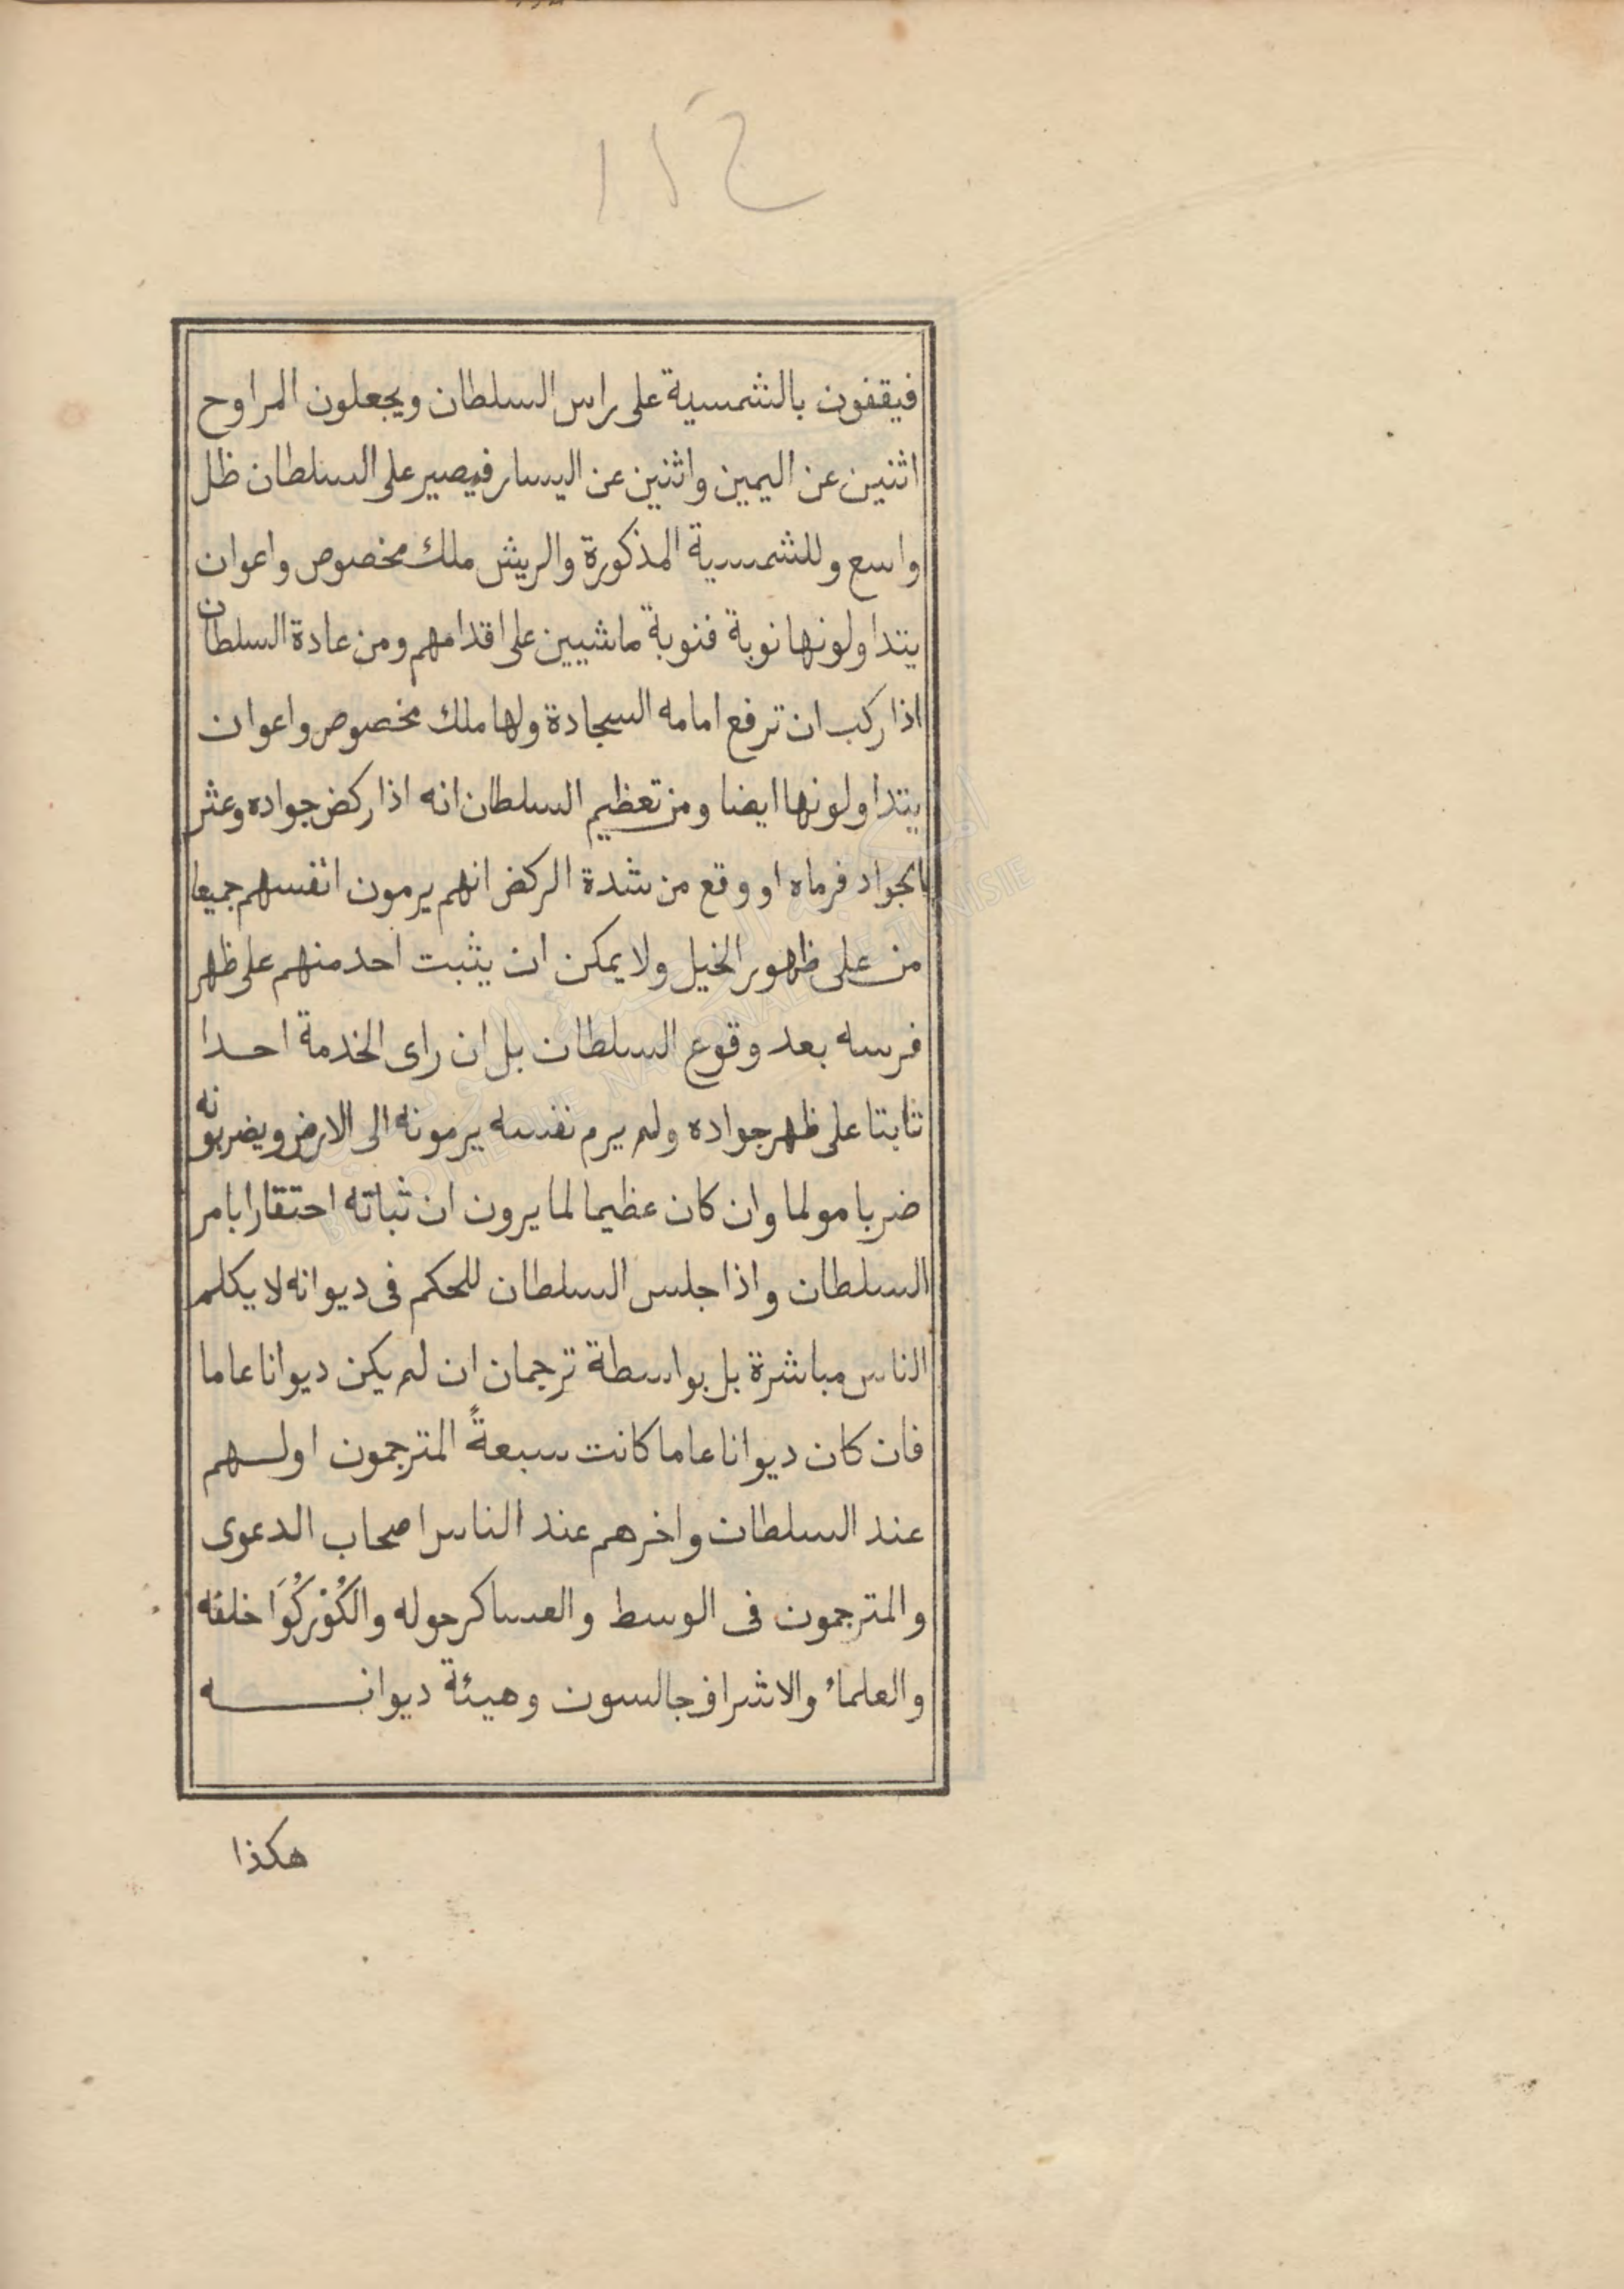 ١٢٤
فيقفون بالشمسية على راس السلطان ويجعلون المراوح
اثنين عن اليمين واثنين عن اليسار فيصير على السلطان ظل
واسع وللشمسية المذكورة والريش ملك مخصوص واعوان
يتداولونها نوبة فنوبة ماشيين على اقدامهم ومن عادة السلطان
اذا ركب ان ترفع امامه السجادة ولها ملك مخصوص واعوان
يتداولونها ايضا ومن تعظيم السلطان انه اذا ركض جواده وعثر
بالجواد فرماه او وقع من شدة الركض انهم يرمون انفسهم جميعا
من على ظهور الخيل ولا يمكن ان يثبت احد منهم على ظهر
فرسه بعد وقوع السلطان بل ان راى الخدمة احدا
ثابتا على ظهر جواده ولم يرم نفسه يرمونه الى الارض ويضربونه
ضربا مولما وان كان عظيما لما يرون ان ثباته احتقارا بامر
السلطان واذا جلس السلطان للحكم فى ديوانه لا يكلم
الناس مباشرة بل بواسطة ترجمان ان لم يكن ديوانا عاما
فان كان ديوانا عاما كانت سبعةً المترجمون اولهم
عند السلطان واخرهم عند الناس اصحاب الدعوى
والمترجمون فى الوسط والعساكر حوله والكُوْركُوَا خلفه
والعلماء والاشراف جالسون وهيئة ديوانه
هكذا
BIBLIOTHEQUE NATIONALE DE TUNISIE